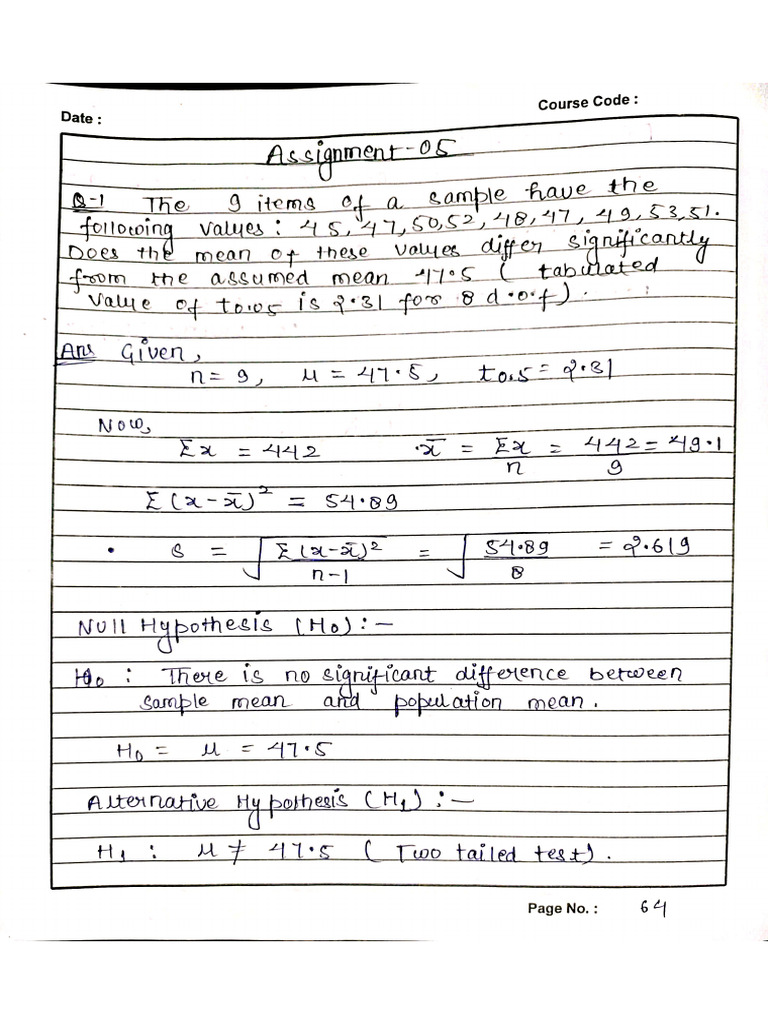 Course Code :
Date :
Assignment-05
Q-1 The 9 items of a sample have the
following values : 45, 47, 50, 52, 48, 47, 49, 53, 51.
Does the mean of these values differ significantly
from the assumed mean 47.5 ( tabulated
value of t0.05 is 2.31 for 8 d.o.f) .
Ans Given,
n = 9, μ = 47.5, t0.5 = 2.31
Now,
Σx = 442 x̄ = Σx/n = 442/9 = 49.1
Σ(x-x̄)² = 54.89
• S = √(Σ(x-x̄)²/(n-1)) = √(54.89/8) = 2.619
Null Hypothesis (H0) :-
H0 : There is no significant difference between
sample mean and population mean.
H0 = μ = 47.5
Alternative Hypothesis (H1) :-
H1 : μ ≠ 47.5 ( Two tailed test) .
Page No. : 64